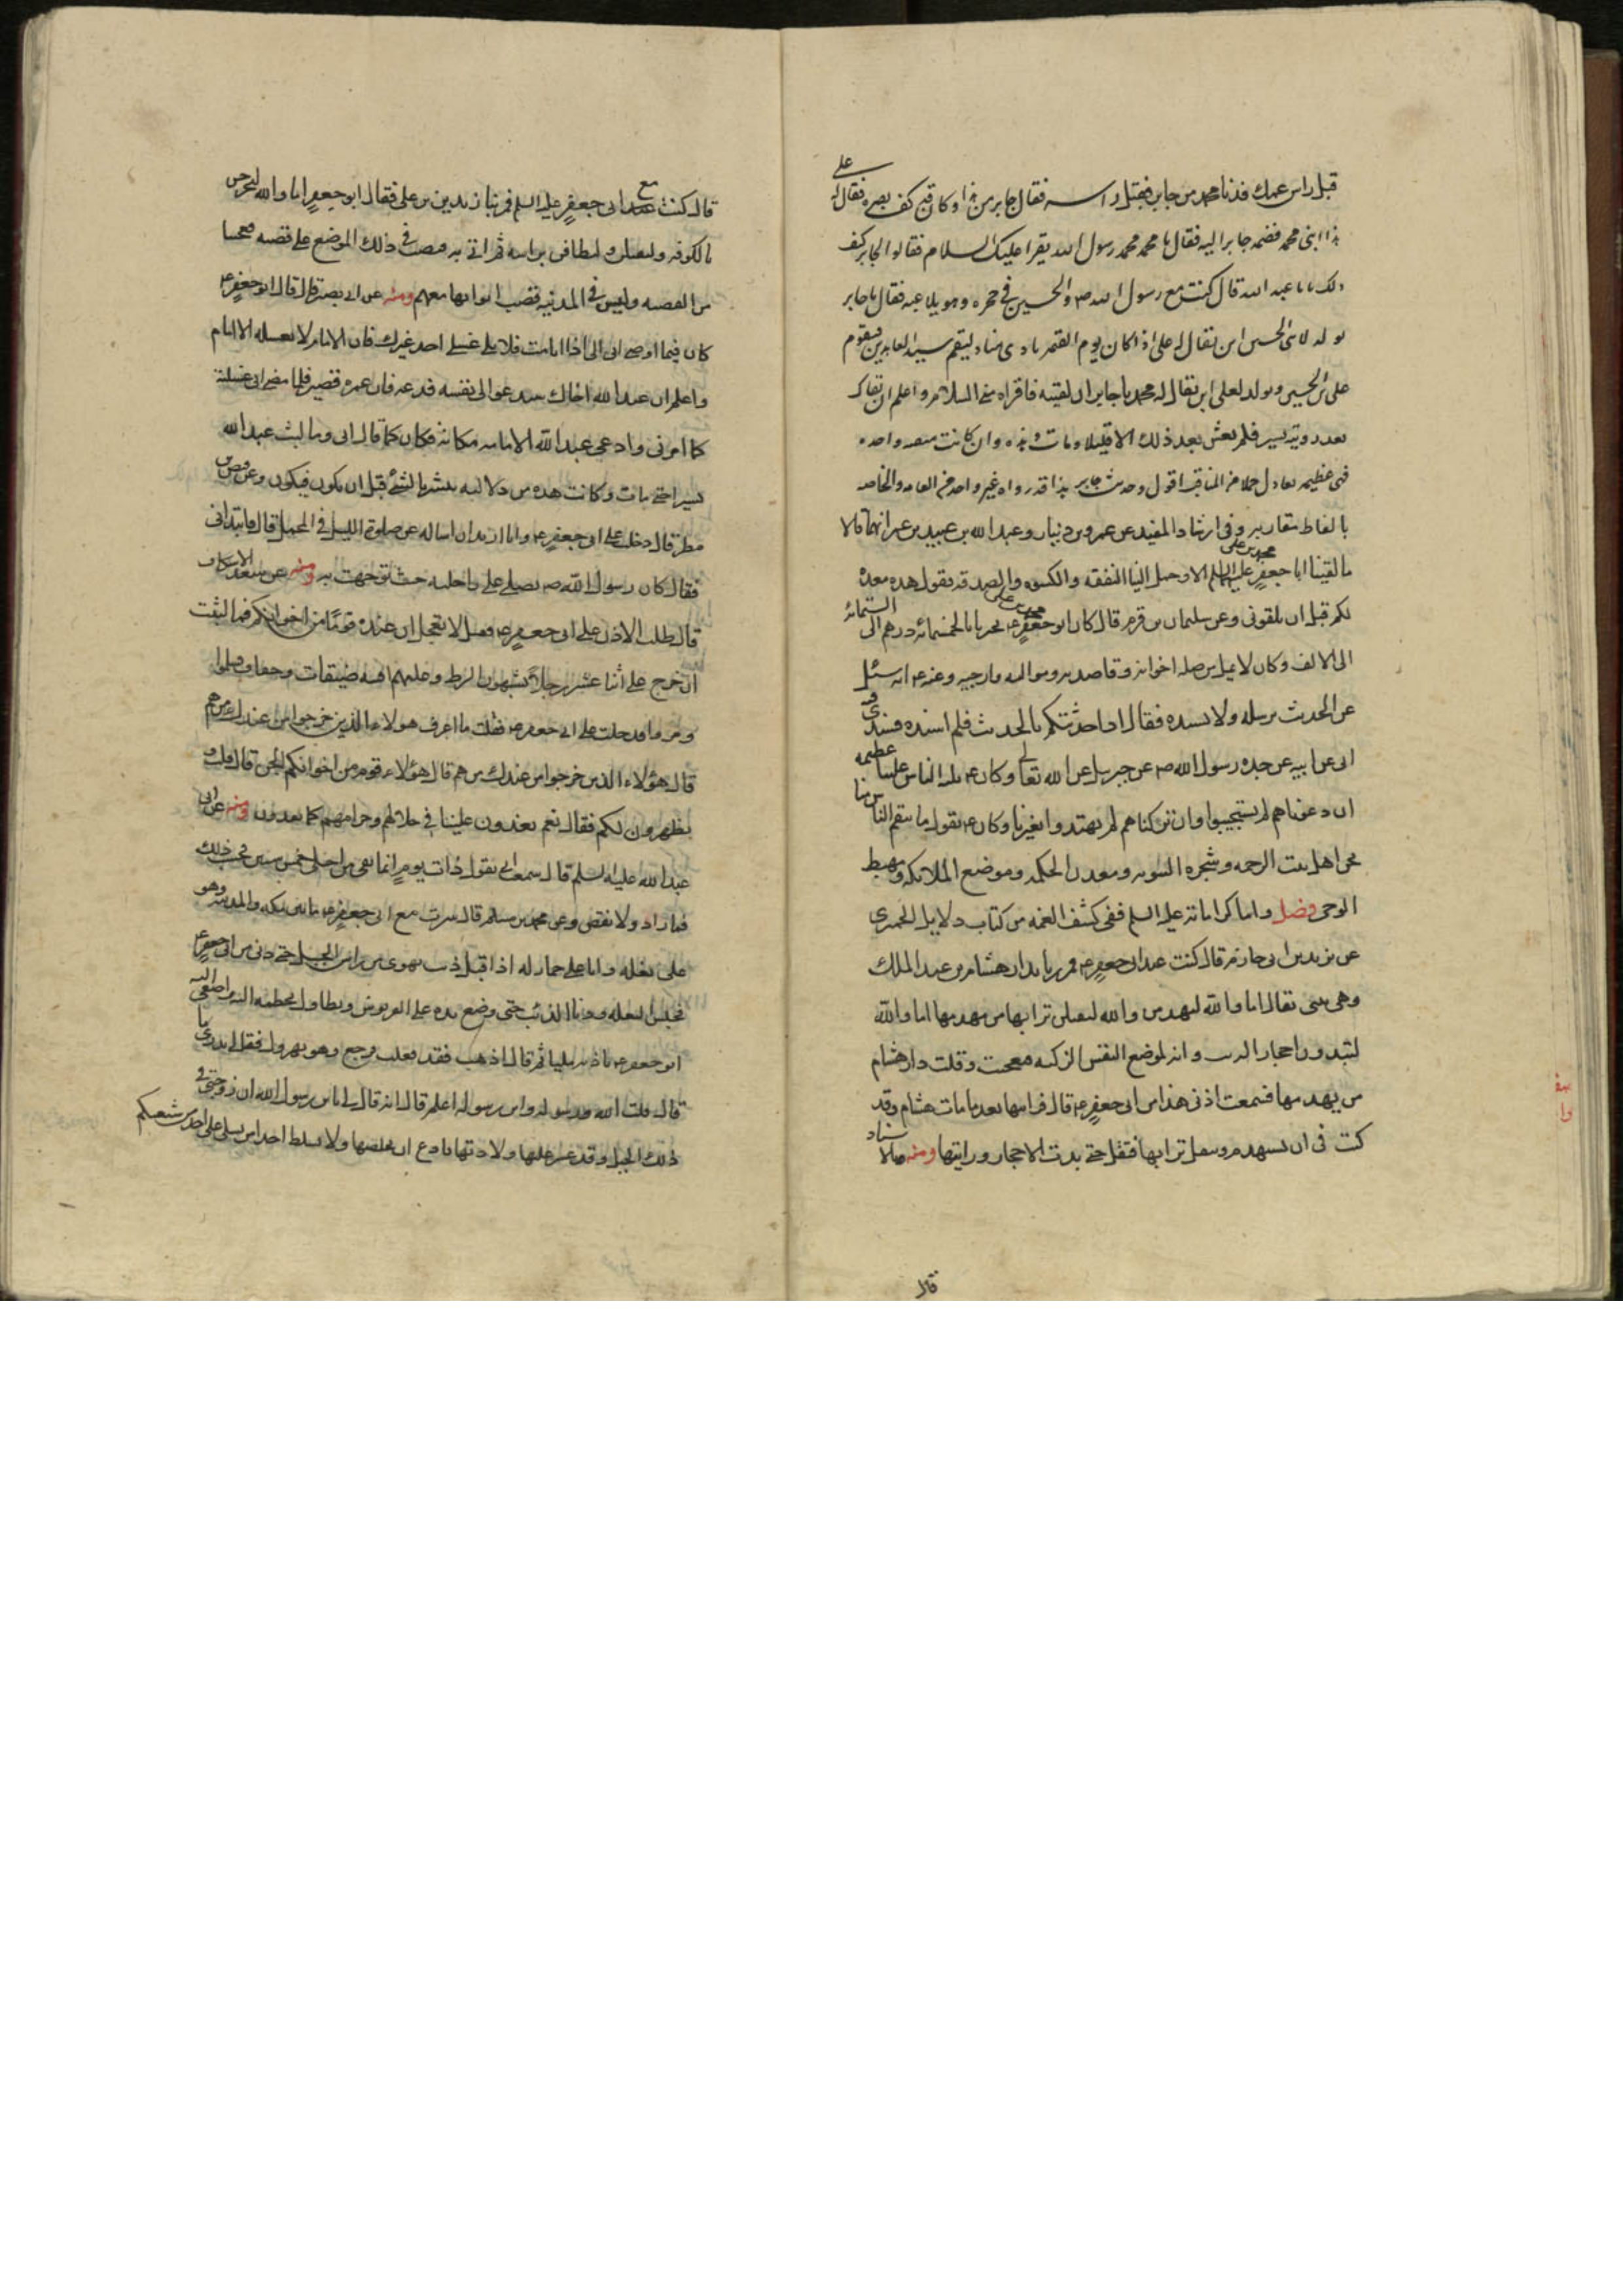 قبل راس عمك فدنا محمد من جابر فقبل راسه فقال جابر من هذا وكان قد كف بصره فقال له على
هذا ابنى محمد فضمه جابر اليه فقال يا محمد محمد رسول الله يقرا عليك السلام فقالوا لجابر كيف
ذلك يا ابا عبد الله قال كنت مع رسول الله ص والحسين فى حجره وهو يلاعبه فقال يا جابر
يولد لابنى الحسين ابن يقال له على اذا كان يوم القيمة نادى مناد ليقم سيد العابدين فيقوم
على بن الحسين ويولد لعلى ابن يقال له محمد يا جابر ان لقيته فاقراه منى السلام واعلم ان بقاك
بعد رويته يسير فلم يعش بعد ذلك الا قليلا ومات وهذه وان كانت منقبة واحدة
فهى عظيمة تعادل جملا من المناقب اقول وحديث جابر هذا قد رواه غير واحد من العامه والخاصه
بالفاظ متقاربه وفى ارشاد المفيد عن عمرو بن دينار وعبد الله بن عبيد بن عمير انهما قالا
ما لقينا ابا جعفر محمد بن على عليهما السلم الا وحمل الينا النفقه والكسوه والصدقه يقول هذه معدة
لكم قبل ان تلقونى وعن سليمان بن قرم قال كان ابو جعفر محمد بن على يجيزنا بالخمسمائة درهم الى الستمائه
الى الالف وكان لا يمل من صله اخوانه وقاصديه ومومليه وراجيه وعنه ع انه سئل
عن الحديث يرسله ولا يسنده فقال اذا حدثتكم بالحديث فلم اسنده فسندى فيه
ابى عن ابيه عن جده رسول الله ص عن جبريل عن الله تعالى وكان ع بليه الناس علينا عظيمه
ان دعوناهم لم يستجيبوا وان تركناهم لم يهتدوا بغيرنا وكان ع يقول ما ينقم الناس منا
نحن اهل بيت الرحمه وشجره النبوه ومعدن الحكمه وموضع الملائكه ومهبط
الوحى فصل واما كراماته عليه السلم ففى كشف الغمه من كتاب دلايل الحميرى
عن يزيد بن ابى حازم قال كنت عند ابى جعفر ع فمررنا بدار هشام بن عبد الملك
وهى تبنى فقال اما والله لتهدمن والله لينقلن ترابها من مهدمها اما والله
لتبدون احجار الزيت وانه لموضع النفس الزكيه فعجبت وقلت دار هشام
من يهدمها فسمعت اذنى هذا من ابى جعفر ع قال فرايتها بعد ما مات هشام وقد
كتب فى ان تستهدم وينقل ترابها فنقل حتى بدت الاحجار ورايتها ومنه بالاسناد
قال
قال كنت مع ابى جعفر عليه السلم فمر بنا زيد بن على فقال ابو جعفر اما والله ليخرجن
بالكوفه وليقتلن وليطافن براسه ثم اتى به فنصب فى ذلك الموضع على قصبه فعجبنا
من القصبه وليس فى المدينه قصب اتوا بها معهم ومنه عن ابى بصير قال قال ابو جعفر ع
كان فيما اوصى ابى الى اذا انا مت فلا يلى غسلى احد غيرك فان الامام لا يغسله الا الامام
واعلم ان عبد الله اخاك سيدعو الى نفسه فدعه فان عمره قصير فلما مضى ابى غسلته
كما امرنى وادعى عبد الله الامامه مكانه فكان كما قال ابى وما لبث عبد الله
يسيرا حتى مات وكانت هذه من دلالته يبشر بالشئ قبل ان يكون فيكون وعن فيض بن
مطر قال دخلت على ابى جعفر ع وانا اريد ان اساله عن صلوة الليل فى المحمل قال فابتدانى
فقال كان رسول الله ص يصلى على راحلته حيث توجهت به ومنه عن سعد الاسكاف
قال طلبت الاذن على ابى جعفر ع فقيل لا تعجل ان عنده قوما من اخوانكم فما لبثت
ان خرج على اثنا عشر رجلا يشبهون الزط وعليهم اقبيه ضيقات وخفاف فسلموا
ومروا فدخلت على ابى جعفر ع فقلت ما اعرف هولاء الذين خرجوا من عندك من هم
قال هؤلاء الذين خرجوا من عندك من هم قال هؤلاء قوم من اخوانكم الجن قال قلت و
يظهرون لكم فقال نعم يغدون علينا فى حلالهم وحرامهم كما تغدون ومنه عن ابى
عبد الله عليه السلم قال سمعت ابى يقول ذات يوم انما بقى من اجلى خمس سنين فحسب ذلك
فما زاد ولا نقص وعن محمد بن مسلم قال سرت مع ابى جعفر ع ما بين مكه والمدينه وهو
على بغله وانا على حمار له اذ اقبل ذئب يهوى من راس الجبل حتى دنى من ابى جعفر ع
فحبس البغله ودنا الذئب حتى وضع يده على القربوس وتطاول بخطمه اليه واصغى اليه
ابو جعفر ع باذنه مليا ثم قال اذهب فقد فعلت فرجع وهو يهرول فقال لى تدرى ما
قال قلت الله ورسوله وابن رسوله اعلم قال انه قال لى يا بن رسول الله ان زوجتى فى
ذلك الجبل وقد عسر عليها ولادتها فادع ان يخلصها ولا يسلط احدا من نسلى على احد من شيعتكم